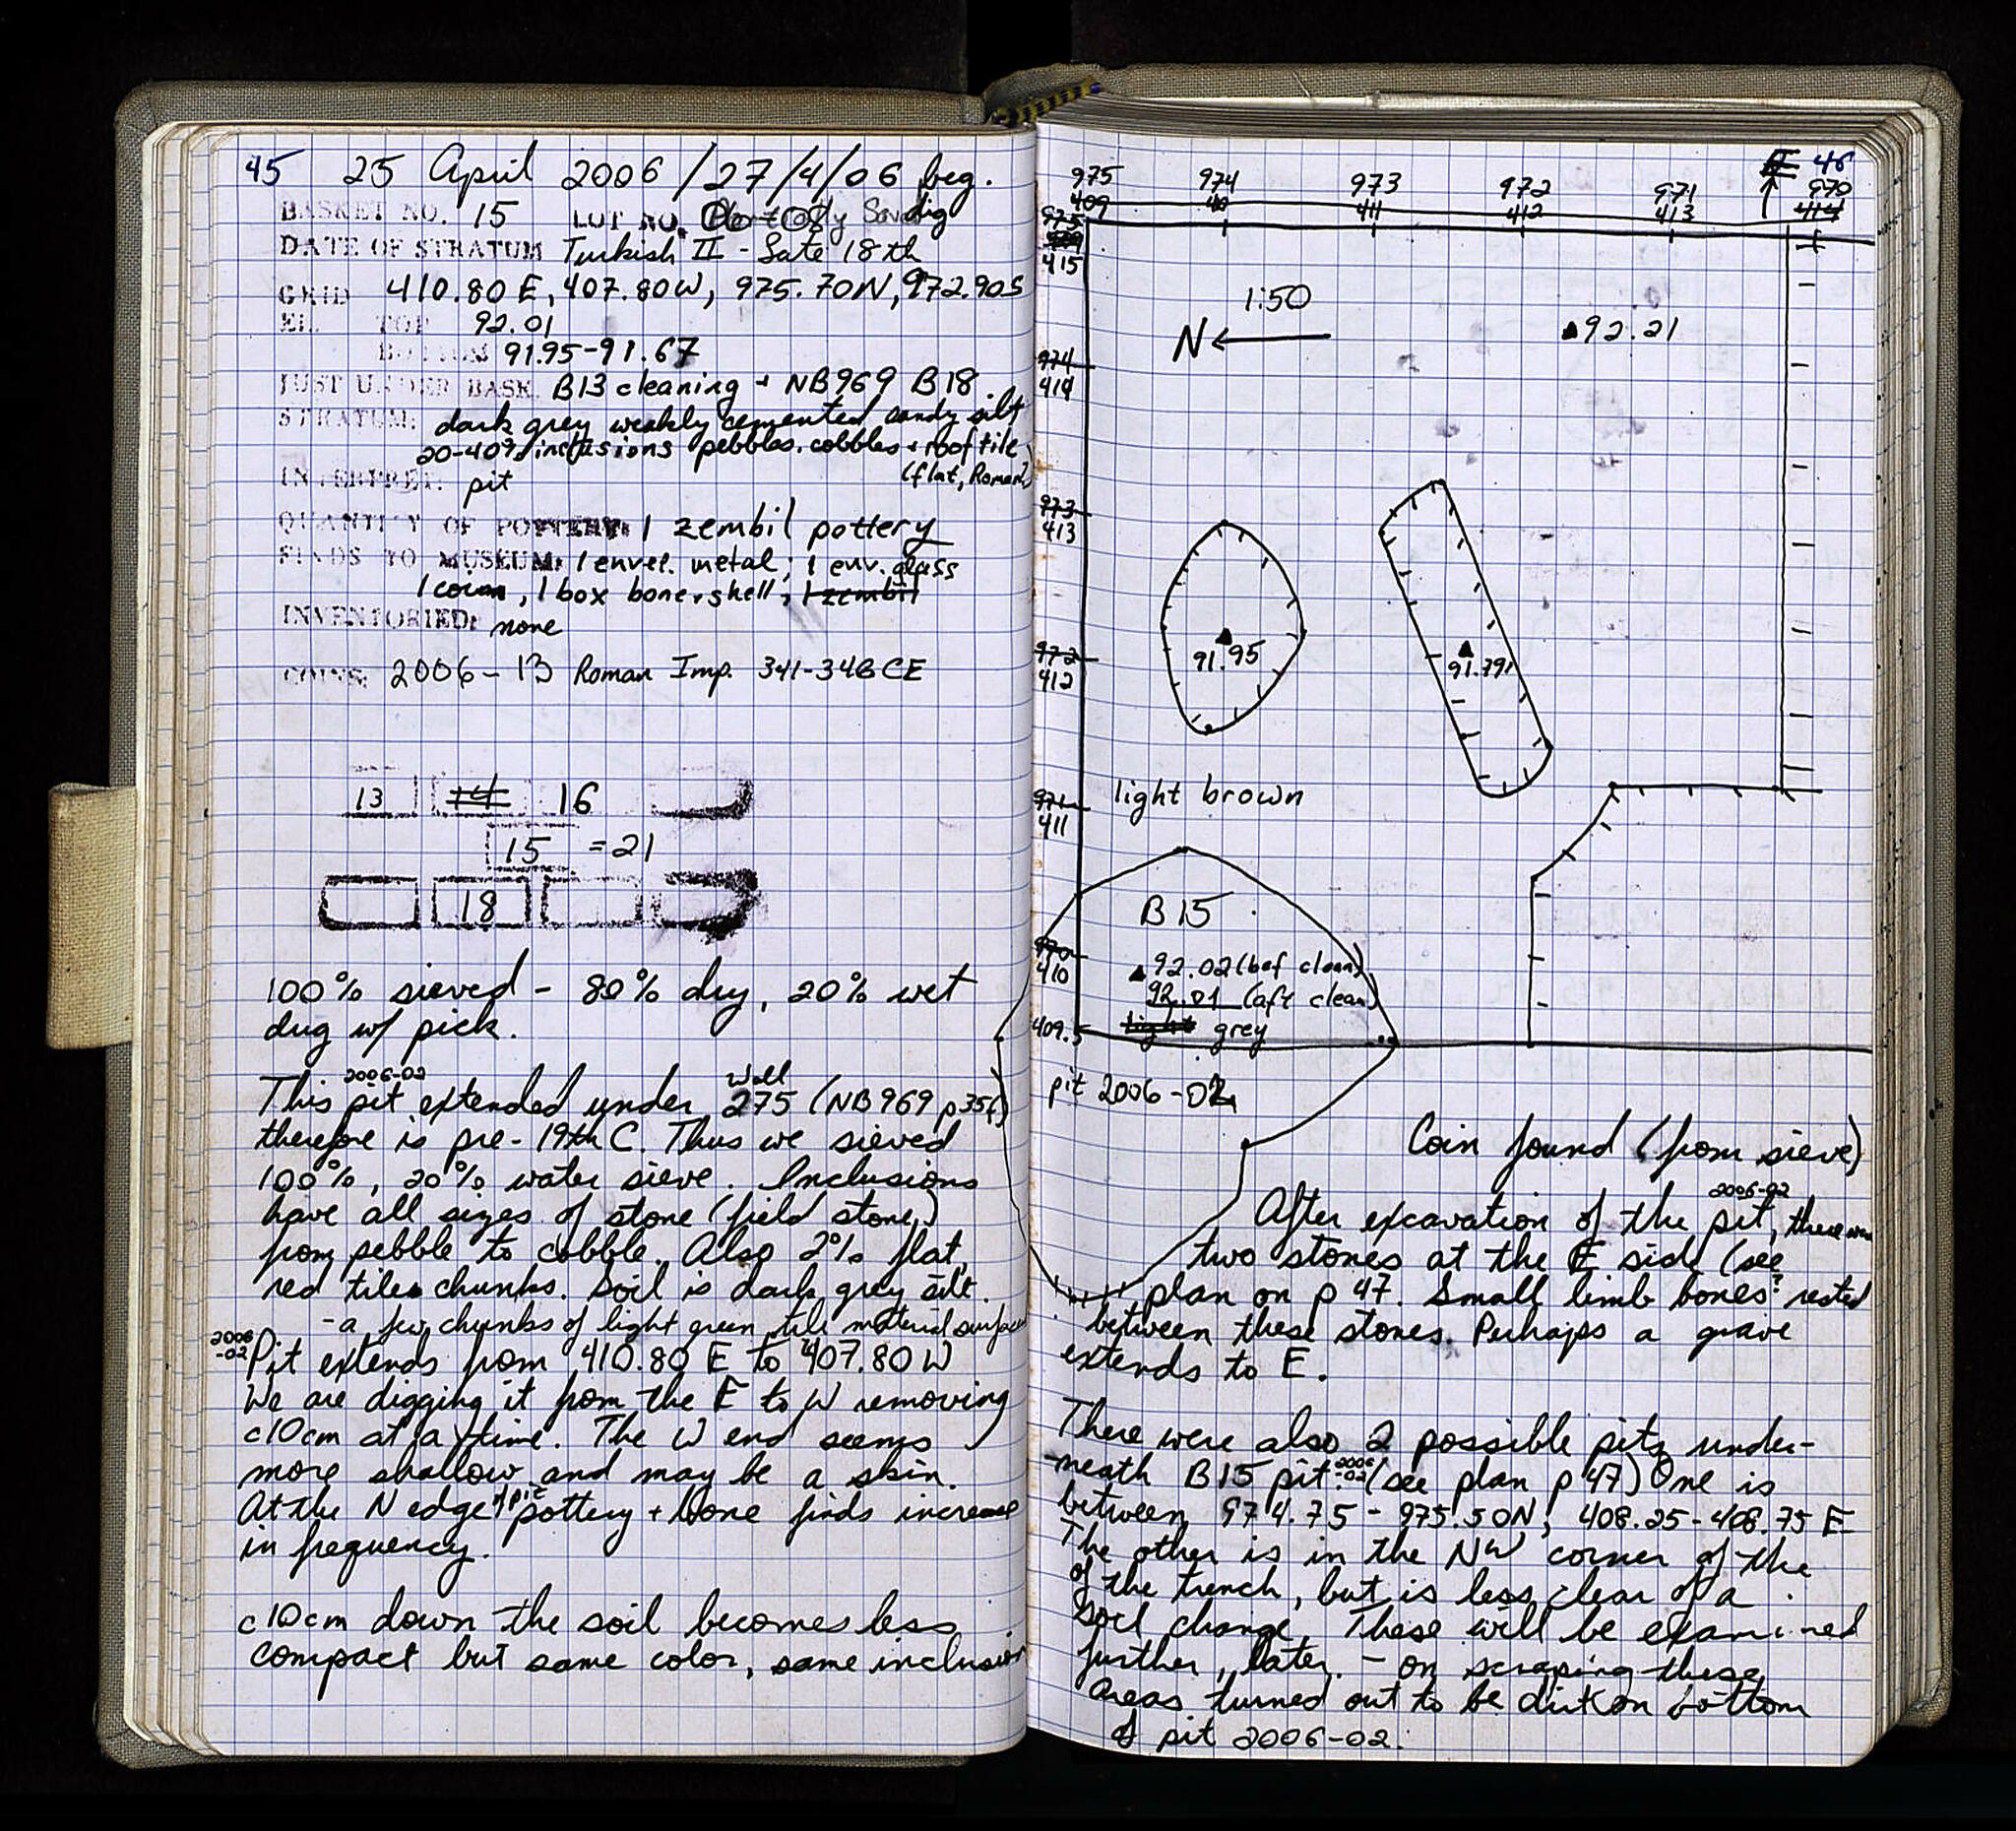 45 25 April 2006 / 27/4/06 beg. dig
BASKET NO. 15 LOT NO.
DATE OF STRATUM Turkish II - Late 18th
GRID 410.80 E, 407.80W, 975.70N, 972.90S
EL. TOP 92.01
BOTTOM 91.95-91.67
JUST UNDER BASK. B13 cleaning + NB969 B18
STRATUM: dark grey weakly cemented sandy silt
20-40% inclusions pebbles, cobbles + roof tile
(flat, Roman?)
INTERPRET: pit
QUANTITY OF POTTERY: 1 zembil pottery
FINDS TO MUSEUM: 1 envel. metal; 1 env. glass
1 coin, 1 box bone + shell, 1 zembil
INVENTORIED: none
COINS: 2006-13 Roman Imp. 341-346 CE
13 14 16
15 = 21
18
100% sieved - 80% dry, 20% wet
dug w/ pick.
This pit 2006-02 extended under Wall 275 (NB969 p35f)
therefore is pre-19th C. Thus we sieved
100%, 20% water sieve. Inclusions
have all sizes of stone (field stone)
from pebble to cobble. Also 2% flat,
red tile chunks. Soil is dark grey silt.
- a few chunks of light green tile material surface
2006-02 Pit extends from 410.80 E to 407.80 W
We are digging it from the E to W removing
c10cm at a time. The W end seems
more shallow and may be a skin.
At the N edge of pit pottery + bone finds increase
in frequency.
c10cm down the soil becomes less
compact but same color, same inclusion
46
975 974 973 972 971 970
409 410 411 412 413 414
975
415
1:50
N
92.21
974
414
973
413
91.95
91.791
972
412
971
411
light brown
B15
970
410
92.02 (bef clean)
92.01 (aft clean)
light grey
409.5
pit 2006-02
Coin found (from sieve)
After excavation of the pit 2006-02, there were
two stones at the E side (see
plan on p 47. Small limb bones? rested
between these stones. Perhaps a grave
extends to E.
There were also 2 possible pits under-
neath B15 pit 2006-02 (see plan p 47) One is
between 974.75 - 975.50N, 408.25-408.75 E
The other is in the NW corner of the
of the trench, but is less clear of a
soil change. These will be examined
further, later. - on scraping these
areas turned out to be dirt on bottom
of pit 2006-02.